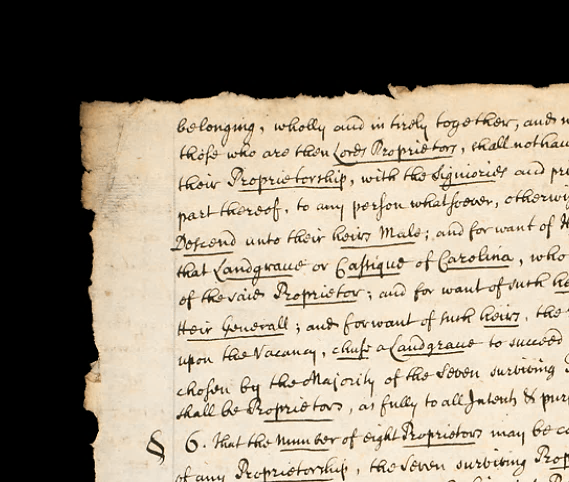 belonging, wholly and intirely together, and
those who are then Lords Proprietors, shall not hau
their Proprietorship, with the Signiories and pri
part thereof, to any person whatsoever, otherwi
Descend unto their heirs Male; and for want of
that Landgraue or Cassique of Carolina, who
of the said Proprietor; and for want of such he
Heir Generall; and for want of such heirs, the
upon the Vacancy, chuse a Landgraue to succeed
chosen by the Majority of the Seven surviving
shall be Proprietors, as fully to all Intents & pur
§ 6. That the number of eight Proprietors may be co
of any Proprietorship, the Seven surviving Prop